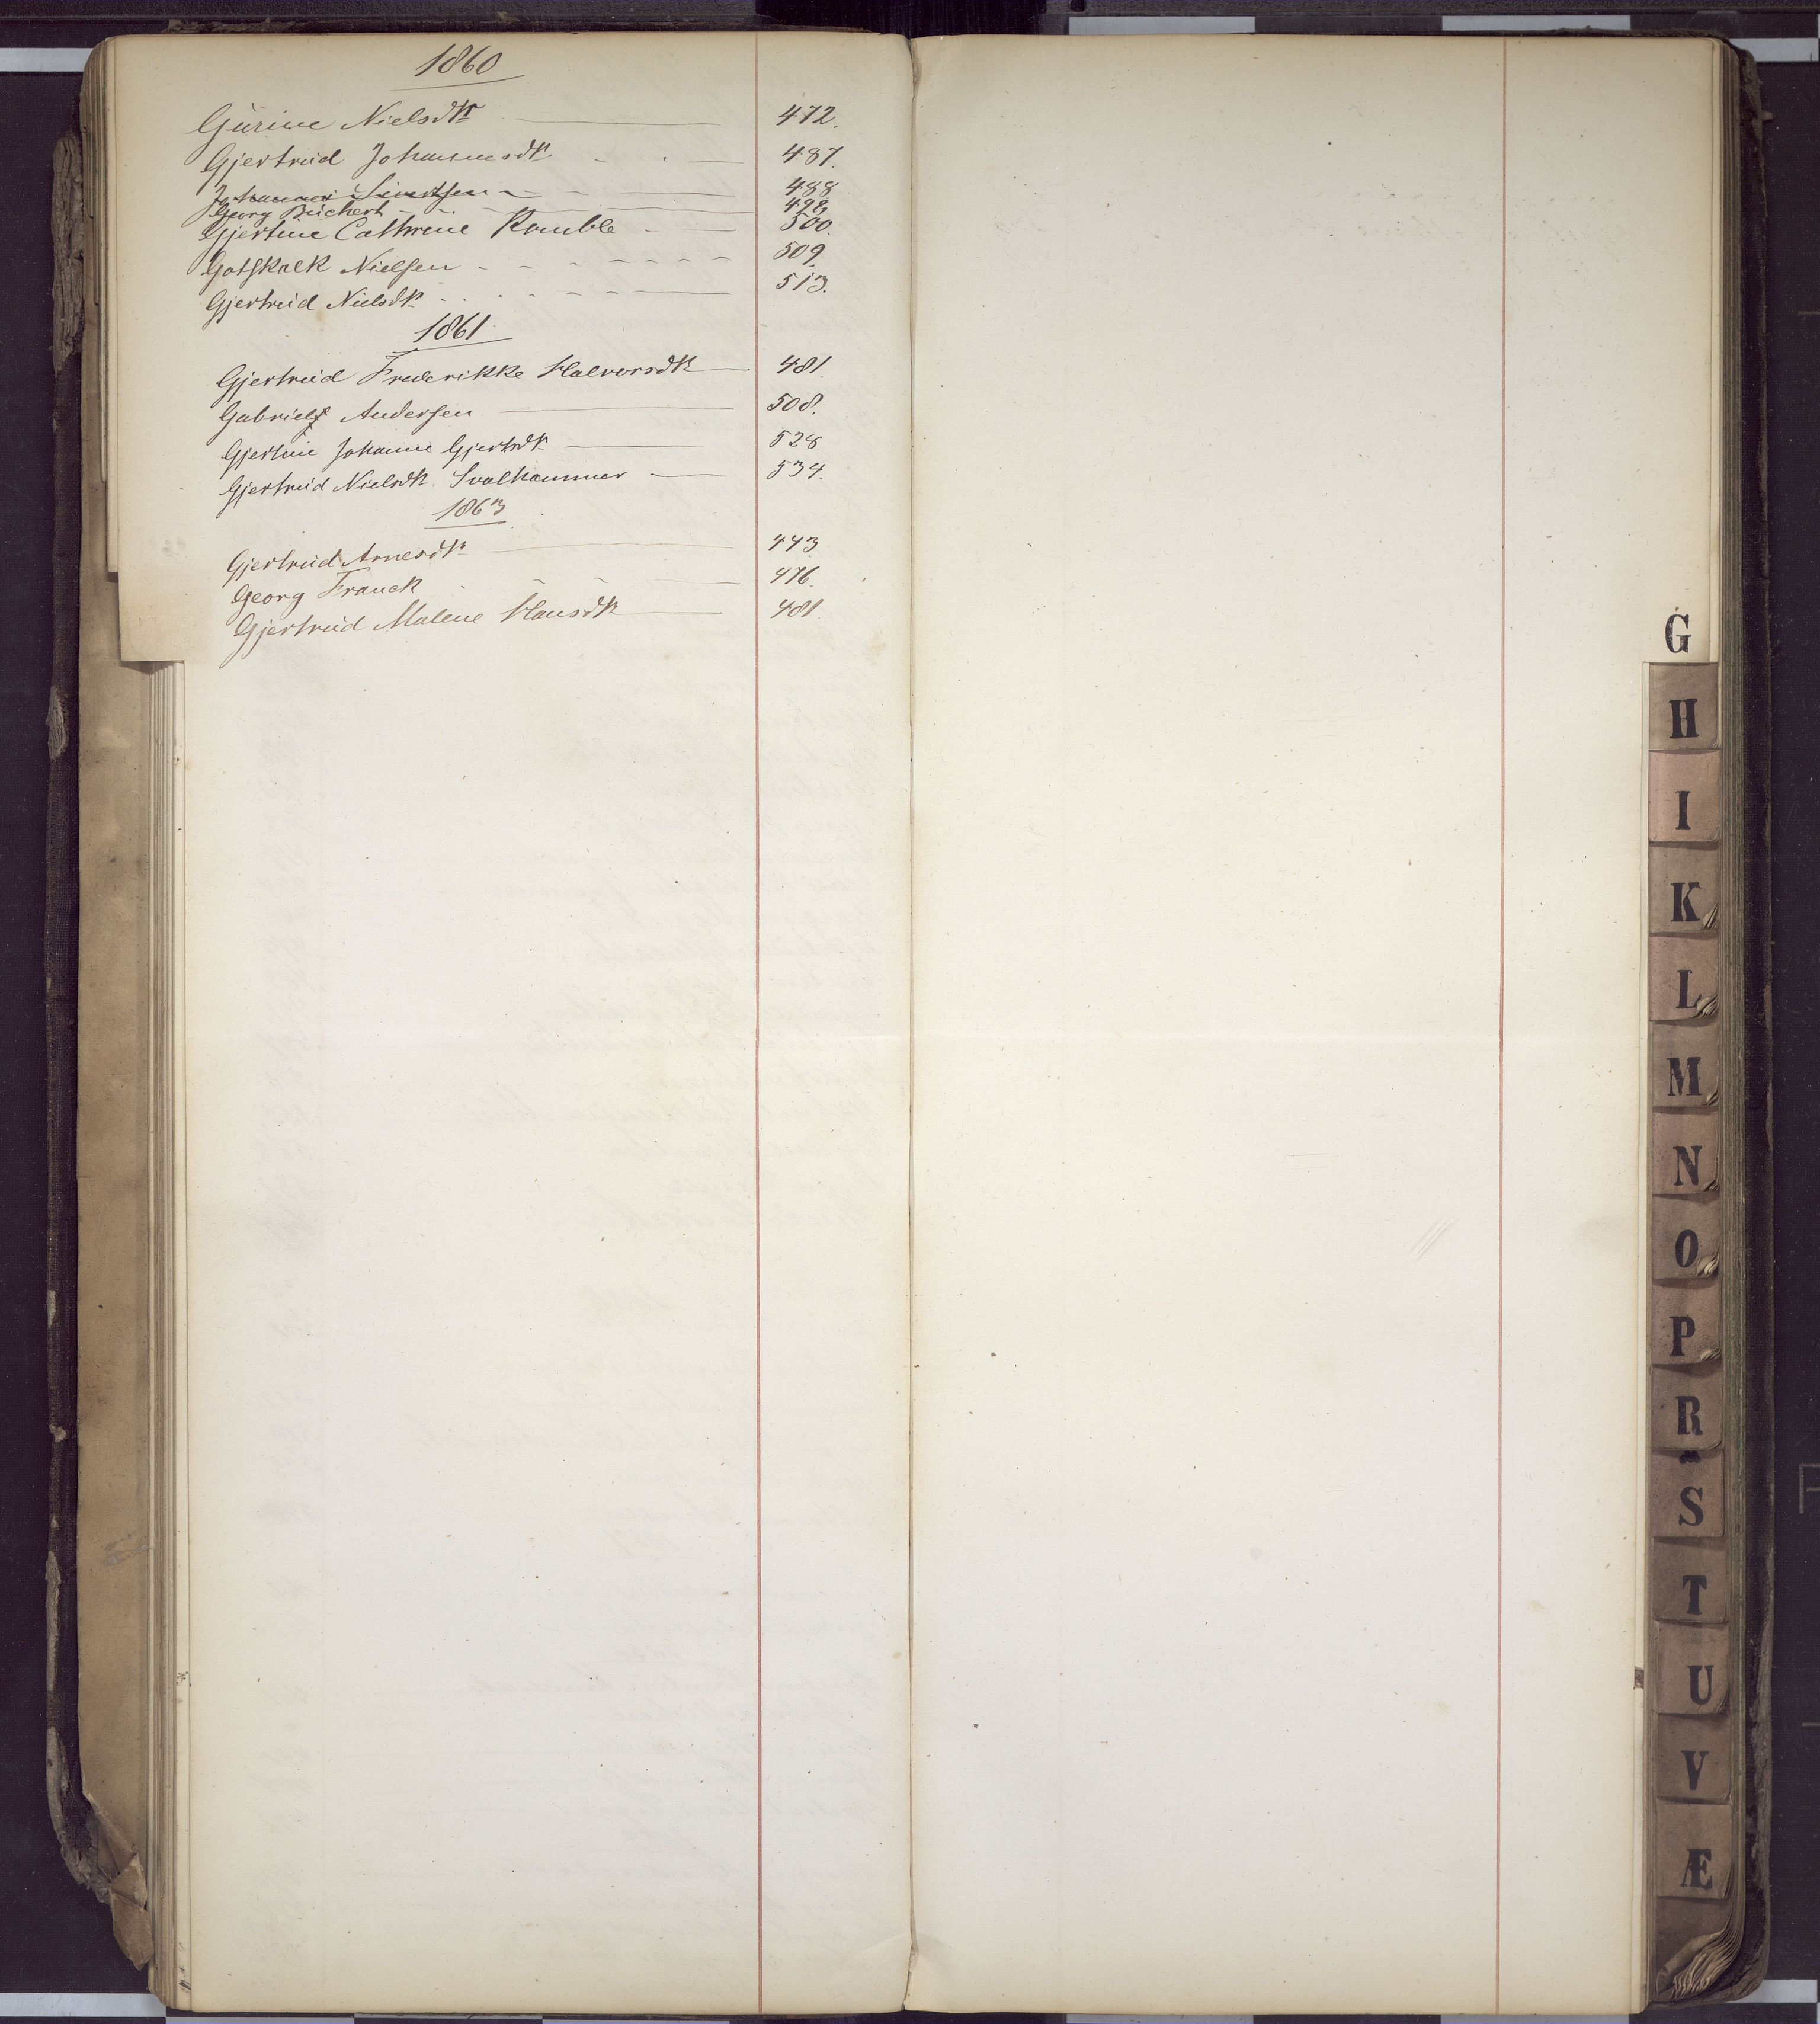 1860
Gurine Nielsdtr 472.
Gjertrud Johannesdtr 487.
Johannes 488
Georg Büchert 498
Gjertine Cathrine Ramble 500.
Gotskalk Nielsen 509
Gjertrud Nielsdtr 513.
1861
Gjertrud Frederikke Halvorsdtr 481
Gabriel Andersen 508.
Gjertine Johanne Gjertsdtr 528
Gjertrud Nielsdtr Svalhammer 534.
1863
Gjertrud Arnesdtr 443
Georg Franck 476.
Gjertrud Malene Hansdtr 481
G
H
I
K
L
M
N
O
P
R
S
T
U
V
Æ